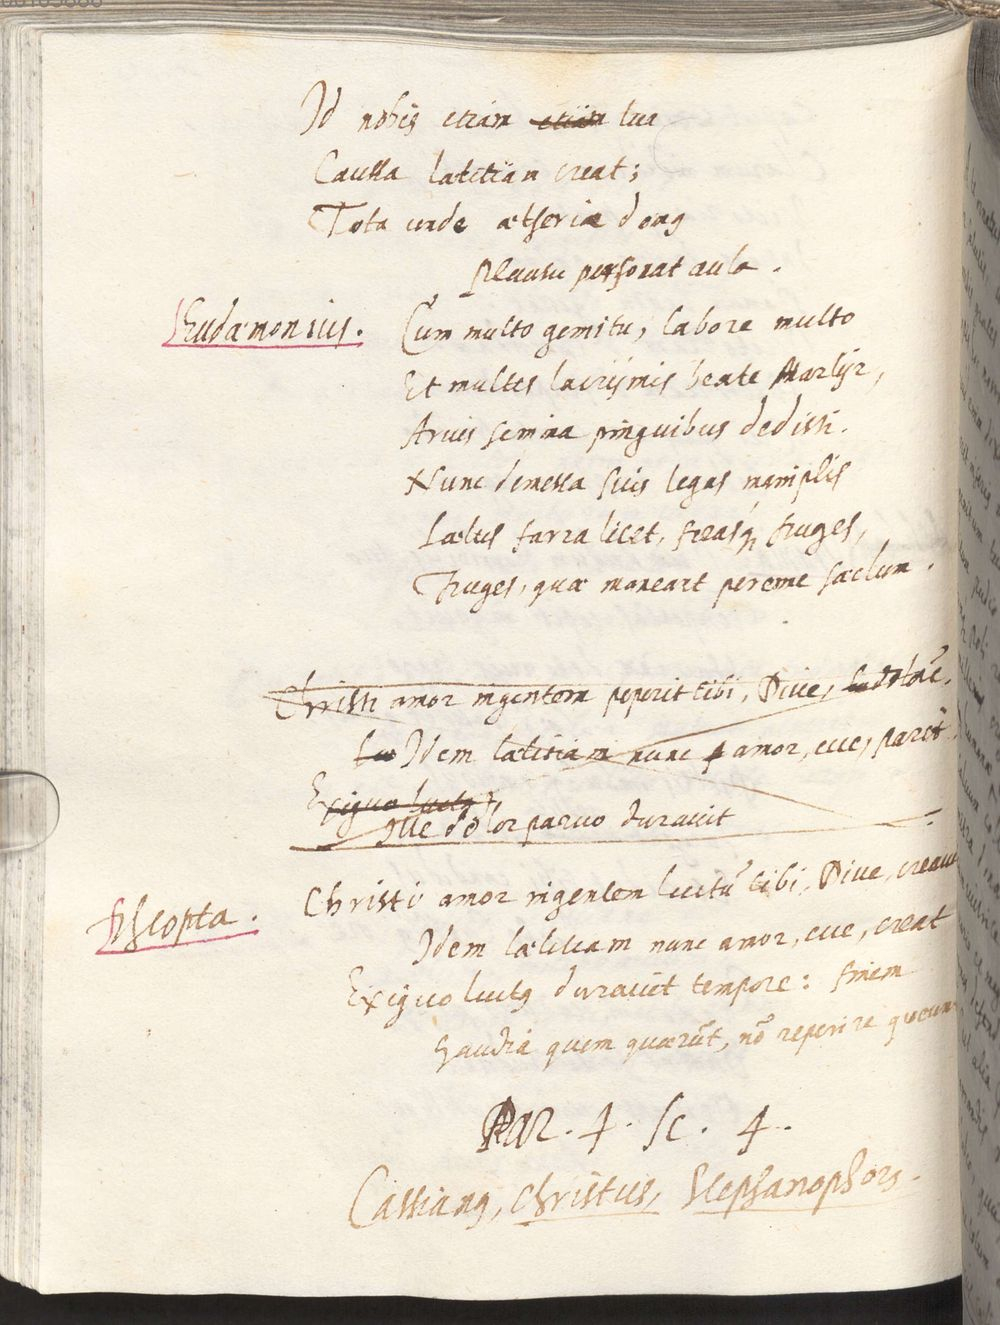 Id nobis etiam etiam tua
Caussa laetitiam creat;
Tota unde aetheriae domus
Plausu personat aula.
Eudaemonius. Cum multo gemitu, labore multo
Et multis lacrijmis beate Martijr,
Arvis semina pinguibus dedisti.
Nunc demessa suis legas maniplis
Laetus farra licet, feras q; fruges,
Fruges, quae maneant perenne saeclum.
Christi amor ingentem peperit tibi, Dive, dolorē,
Idem laetitiam nunc amor, ecce, parit.
Exiguo luctus
Ille dolor parvo duravit
Christi amor ingentem luctū tibi, Dive, creavit
Idem laetitiam nunc amor, ecce, creat
Exiguo luctus duravit tempore: finem
Gaudia quem quaerūt, nō reperire queunt
Par. 4. Sc. 4.
Cassianus, Christus, Stephanophorus.